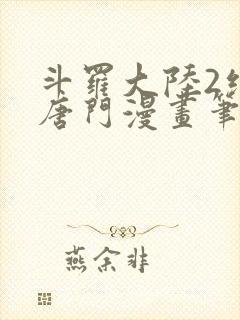 斗羅大陸2
唐門漫畫筆
燕余非